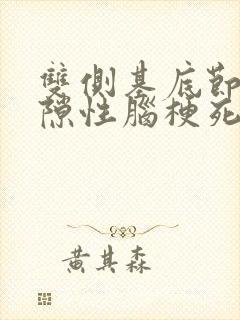 雙側基底節
隙性腦梗死
黃其森